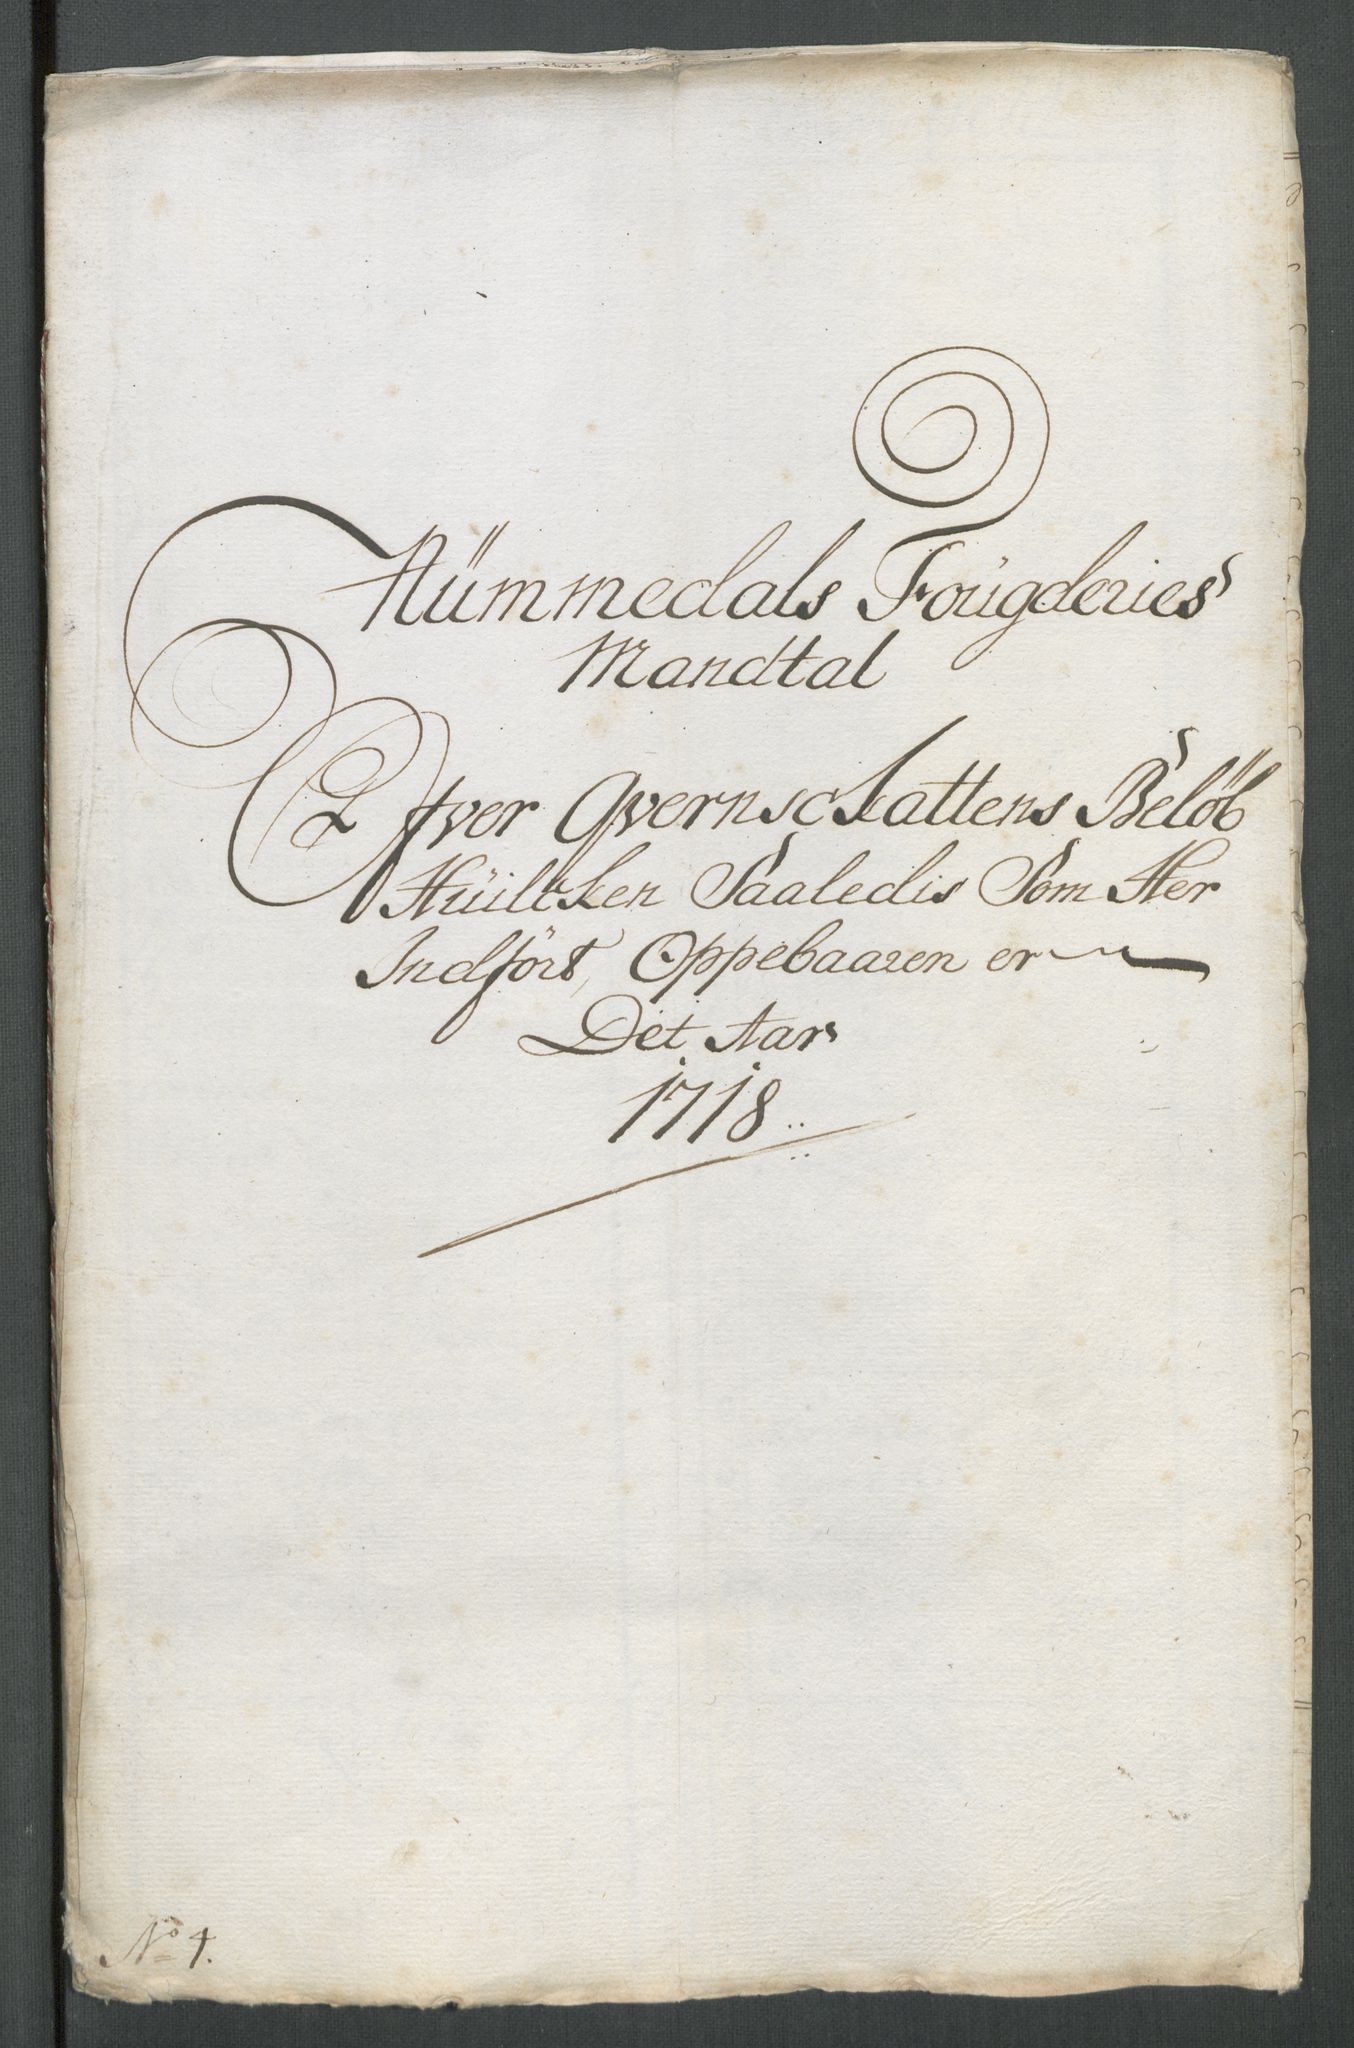 Nümmedals Foügderies
Mandtal
Over Qvernsckattens Beløb
Hüilcken Saaledis Som Her
Indført, Oppebaaren er
Det Aar
1718
No 4.